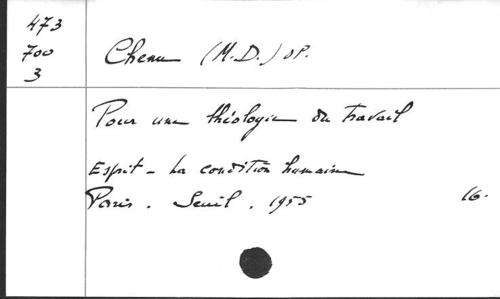 473
700
3
Chenu (M.D.) OP.
Pour une théologie du Travail
Esprit - La condition humaine
Paris. Seuil. 1955 16.